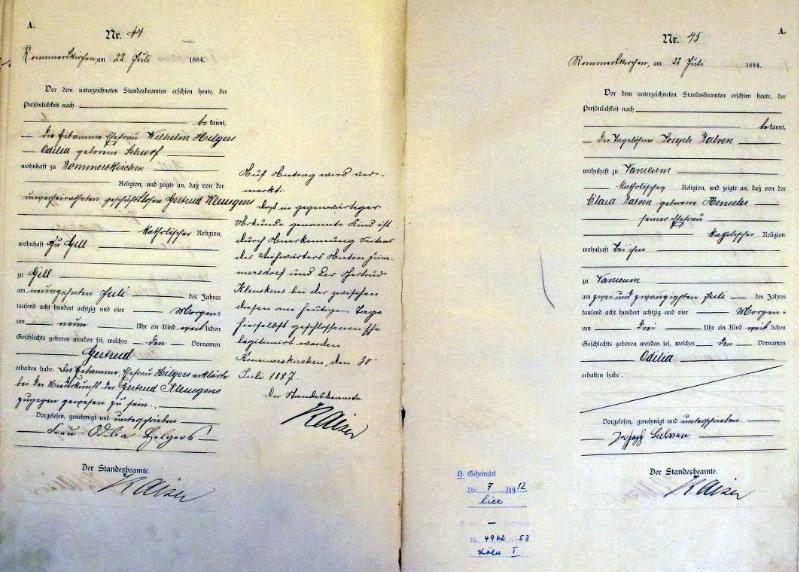 A.
Nr. 44
Rommerskirchen, am 22 Juli 1884.
Vor dem unterzeichneten Standesbeamten erschien heute, der
Persönlichkeit nach
bekannt,
die Hebamme Ehefrau Wilhelm Hilgers
Odilia geborene Schurf
wohnhaft zu Rommerskirchen
Religion, und zeigte an, daß von der
unverheiratheten geschäftslosen Gertrud Klemgens
katholischer Religion,
wohnhaft zu Gill
zu Gill
am neunzehnten Juli des Jahres
tausend acht hundert achtzig und vier Morgens
um neun Uhr ein Kind weiblichen
Geschlechts geboren worden sei, welches den Vornamen
Gertrud
erhalten habe. Die Hebamme Ehefrau Hilgers erklärte
bei der Niederkunft der Gertrud Klemgens
zugegen gewesen zu sein.
Vorgelesen, genehmigt und unterschrieben
Frau Odilia Hilgers
Der Standesbeamte.
Kaiser
Auf Antrag wird ver-
merkt:
Daß in gegenwärtiger
Urkunde genannte Kind ist
durch Anerkennung Seitens
des
und der Gertrud
bei der zwischen
diesen am heutigen Tage
hierselbst geschlossenen Ehe
legitimirt worden
Rommerskirchen, den 30
Juli 1887.
Der Standesbeamte
Kaiser
A.
Nr. 45
Rommerskirchen, am 22 Juli 1884.
Vor dem unterzeichneten Standesbeamten erschien heute, der
Persönlichkeit nach
bekannt,
der Tagelöhner Joseph
wohnhaft zu Vanikum
katholischer Religion, und zeigte an, daß von der
Clara geborene Henseler
seiner Ehefrau
katholischer Religion
wohnhaft bei ihm
zu Vanikum
am zwei und zwanzigsten Juli des Jahres
tausend acht hundert achtzig und vier Morgens
um drei Uhr ein Kind weiblichen
Geschlechts geboren worden sei, welches den Vornamen
Odilia
erhalten habe.
Vorgelesen, genehmigt und unterschrieben
Joseph
Der Standesbeamte.
Kaiser
Geheiratet
Nr. 7 /1912
hier
Nr. 4962 53
Köln I